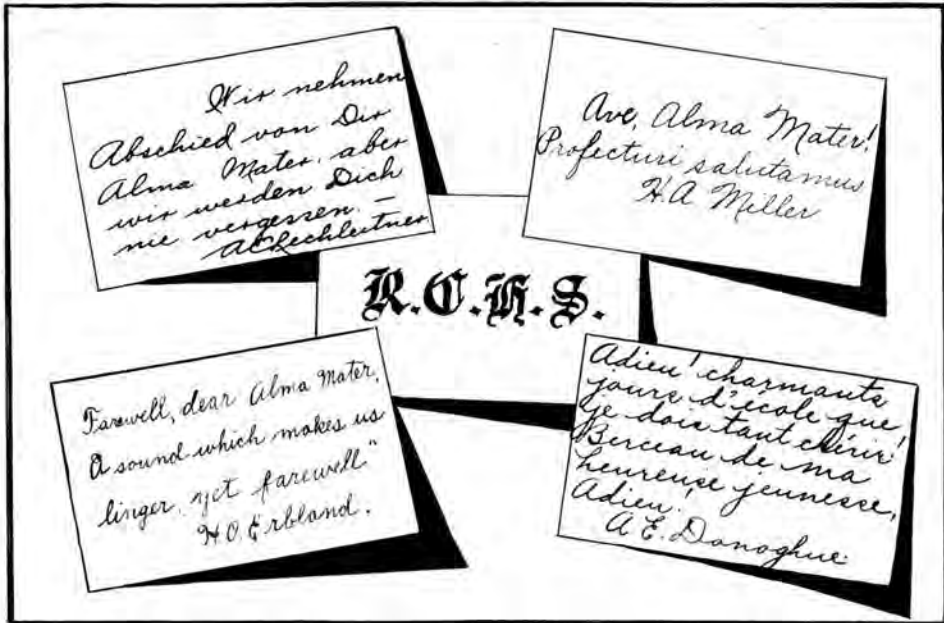 Wir nehmen
Abschied von Dir
Alma Mater, aber
wir werden Dich
nie vergessen. —
A C Lechleitner
Ave, Alma Mater!
Profecturi salutamus
H.A Miller
R.C.H.S.
Farewell, dear Alma Mater,
A sound which makes us
linger, yet farewell"
H.O. Erbland.
Adieu! charmants
jours d'école que
je dois tant chérir!
Berceau de ma
heureuse jeunesse,
Adieu!
A. E. Donoghue.